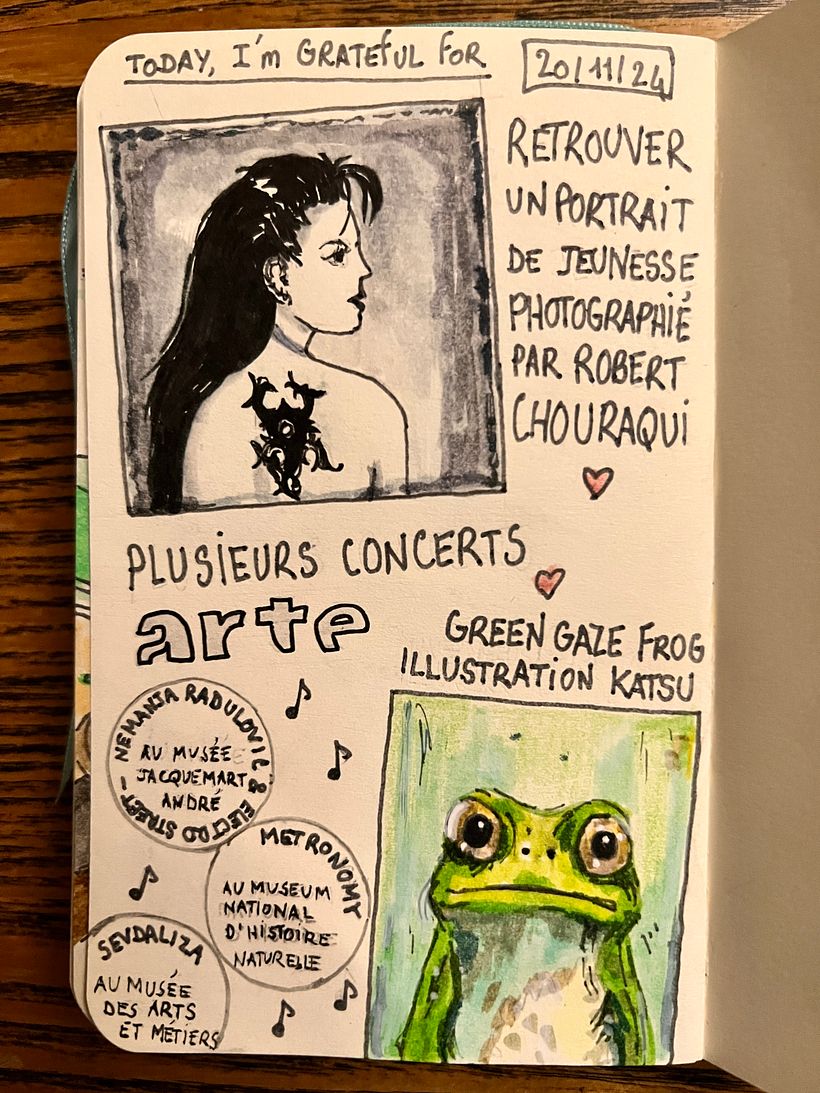 TODAY, I'm GRATEFUL FOR
20/11/24
RETROUVER
UN PORTRAIT
DE JEUNESSE
PHOTOGRAPHIÉ
PAR ROBERT
CHOURAQUI
PLUSIEURS CONCERTS
arte
GREEN GAZE FROG
ILLUSTRATION KATSU
NEMANJA RADULOVIC & ELECTRO STREET -
AU MUSÉE
JACQUEMART
ANDRÉ
METRONOMY
AU MUSEUM
NATIONAL
D'HISTOIRE
NATURELLE
SEVDALIZA
AU MUSÉE
DES ARTS
ET MÉTIERS